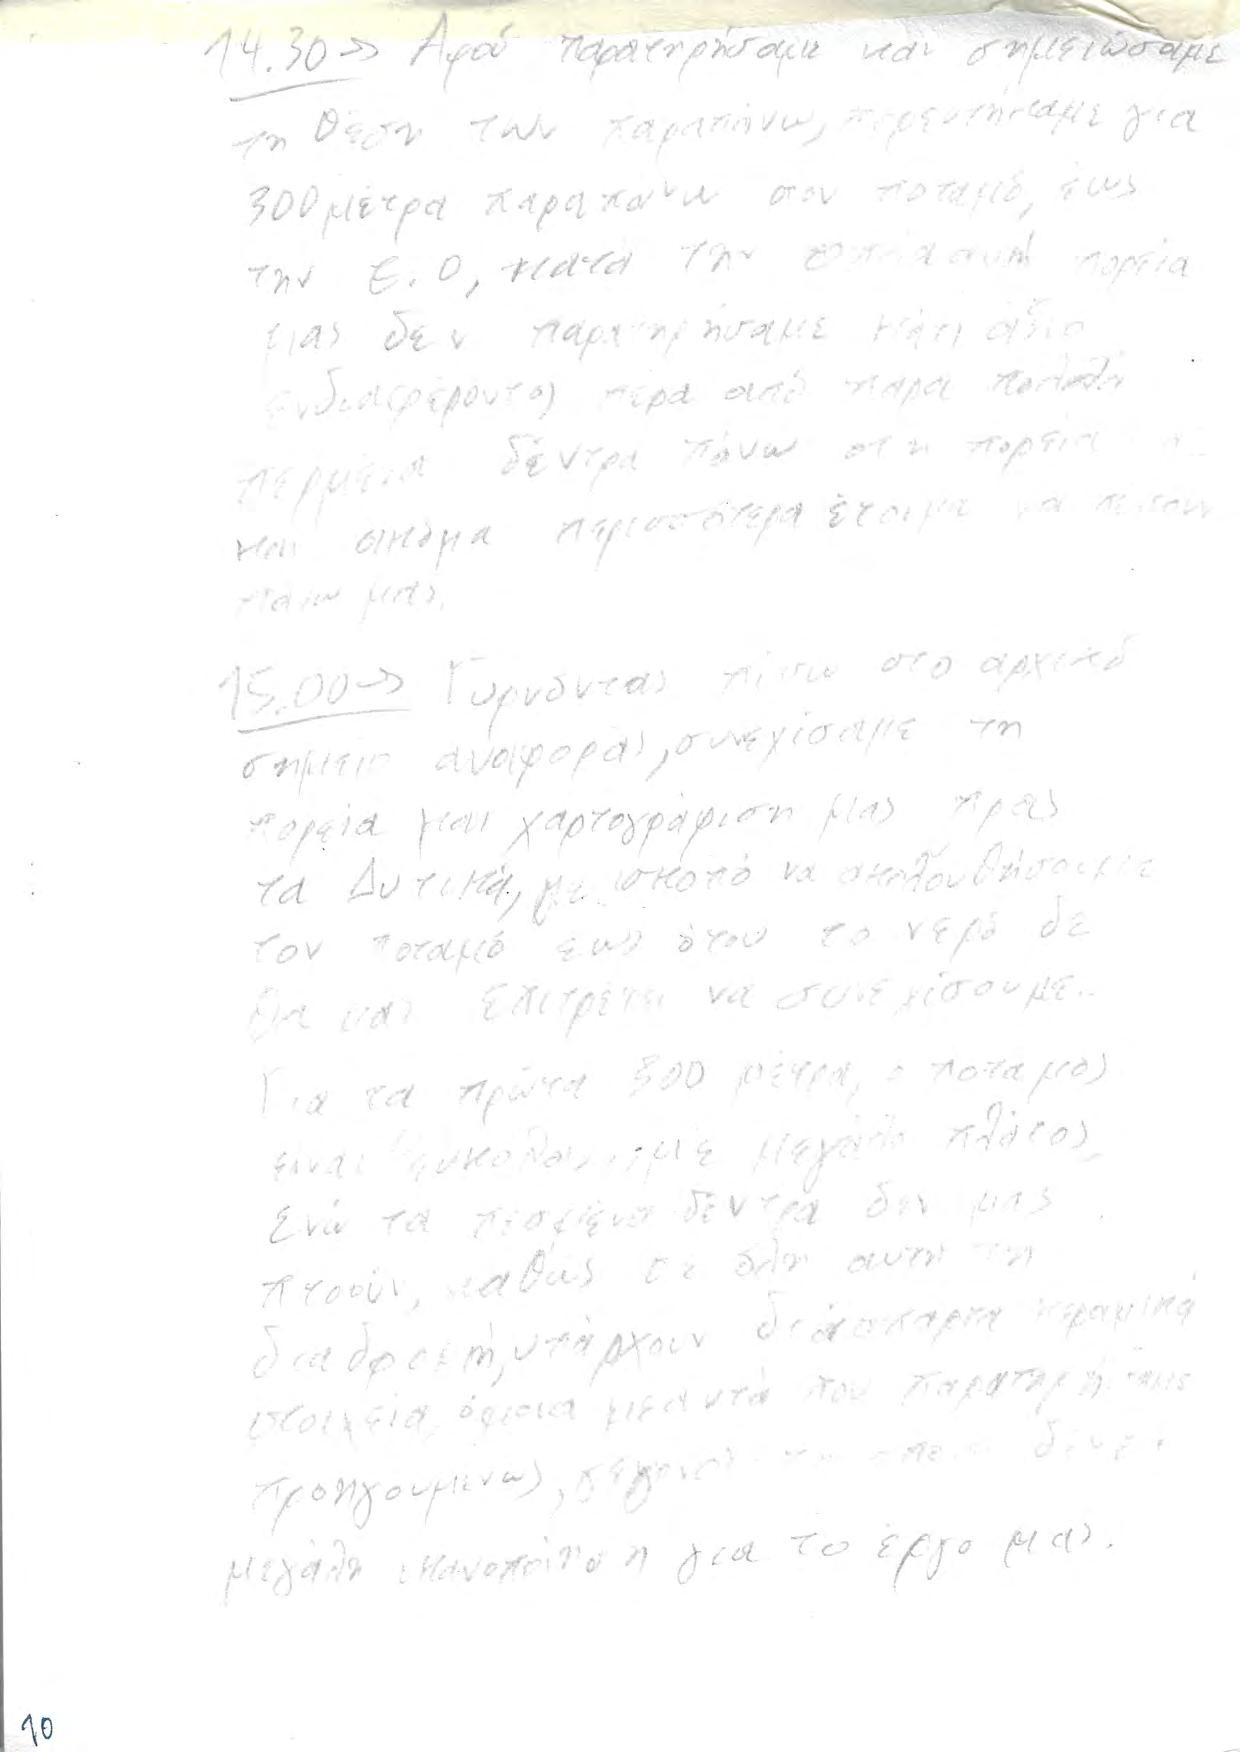 14.30 → Αφού παρατηρήσαμε και σημειώσαμε
τη θέση των παραπάνω, πορευτήκαμε για
300 μέτρα παραπάνω στον ποταμό, έως
την Ε.Ο, κατά την οποία αυτή πορεία
μας δεν παρατηρήσαμε κάτι άξιο
ενδιαφέροντος πέρα από πάρα πολλά
δέντρα πάνω στη πορεία
και ακόμα περισσότερα έτοιμα να πέσουν
πάνω μας.
15.00 → Γυρνόντας πίσω στο αρχικό
σημείο αναφοράς, συνεχίσαμε τη
πορεία και χαρτογράφιση μας προς
τα Δυτικά, με σκοπό να ακολουθήσουμε
τον ποταμό εως ότου το νερό δε
θα μας επιτρέπει να συνεχίσουμε..
Για τα πρώτα 300 μέτρα, ο ποταμός
είναι με μεγάλο πλάτος,
ενώ τα πεσμένα δέντρα δεν μας
πτοούν, καθώς σε όλη αυτή τη
διαδρομή, υπάρχουν διάσπαρτα κεραμικά
στοιχεία, όμοια με αυτά που παρατηρήσαμε
προηγουμένως, γεγονός το οποίο δίνει
μεγάλη ικανοποίηση για το έργο μας.
10